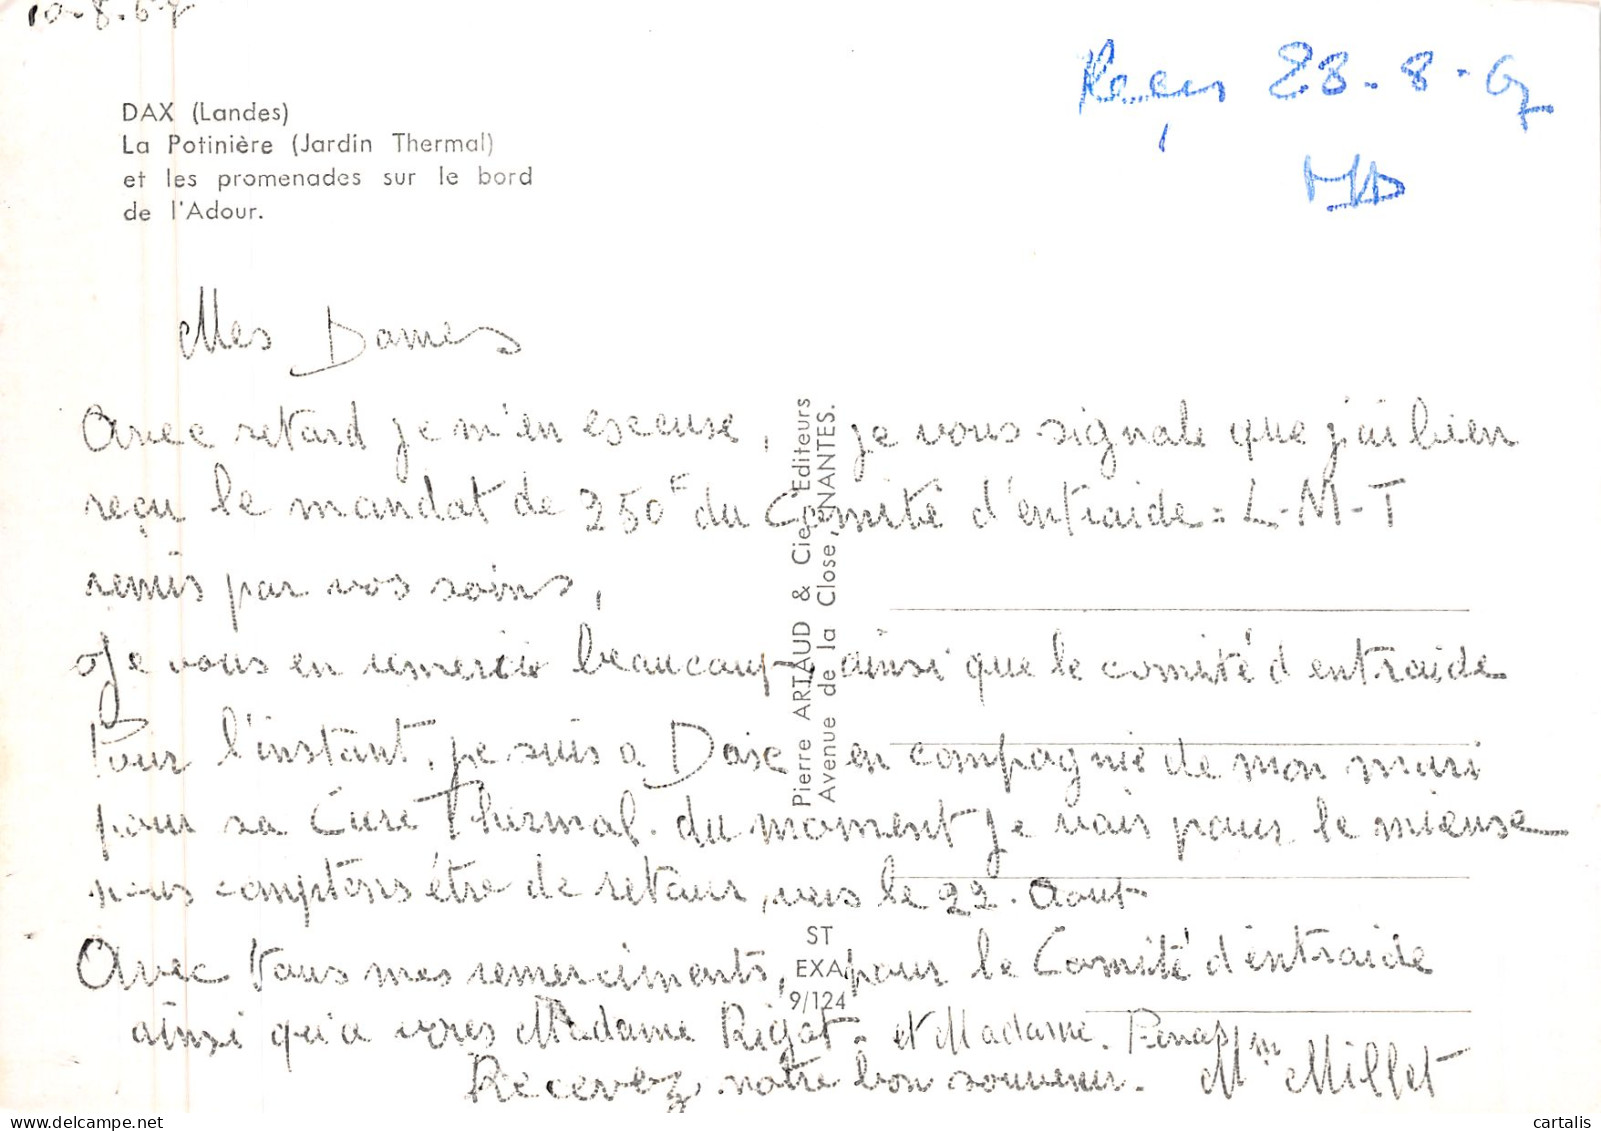 10-8-67
Reçus 23-8-67
DAX (Landes)
La Potinière (Jardin Thermal)
et les promenades sur le bord
de l'Adour.
Mes Dames
Avec retard je m'en escuse, je vous signale que j'ai bien
reçu le mandat de 250F du Comité d'entraide = L-M-T
remis par vos soins,
Je vous en remercie beaucoup, ainsi que le comité d'entraide
Pour l'instant, je suis a Dax en compagnie de mon mari
pour sa Cure Thermal. du moment je vais pour le mieuse
nous comptons être de retour, vers le 22. Aout
Avec tous mes remerciments, pour le Comité d'entraide
ainsi qu'a vores Madame Rigat. et Madame.
Recevez notre bon souvenir. Mme Millet
Pierre ARTAUD & Cie, Editeurs
Avenue de la Close, NANTES.
ST
EXA
9/124
cartalis